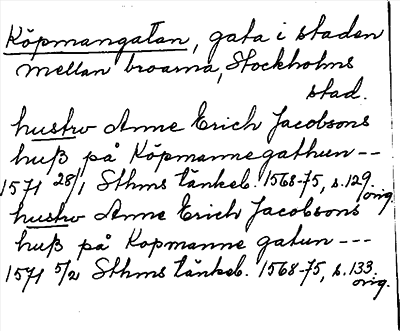 Köpmangatan, gata i staden
mellan broarna, Stockholms
stad.
hustrv Anne Erich Jacobsons
huß på Köpmannegathun --
1571 28/1 Sthms tänkeb. 1568-75, s. 129. orig.
hustrv Anne Erich Jacobsons
huß på Kopmanne gatun ---
1571 5/2 Sthms tänkeb. 1568-75, s. 133. orig.